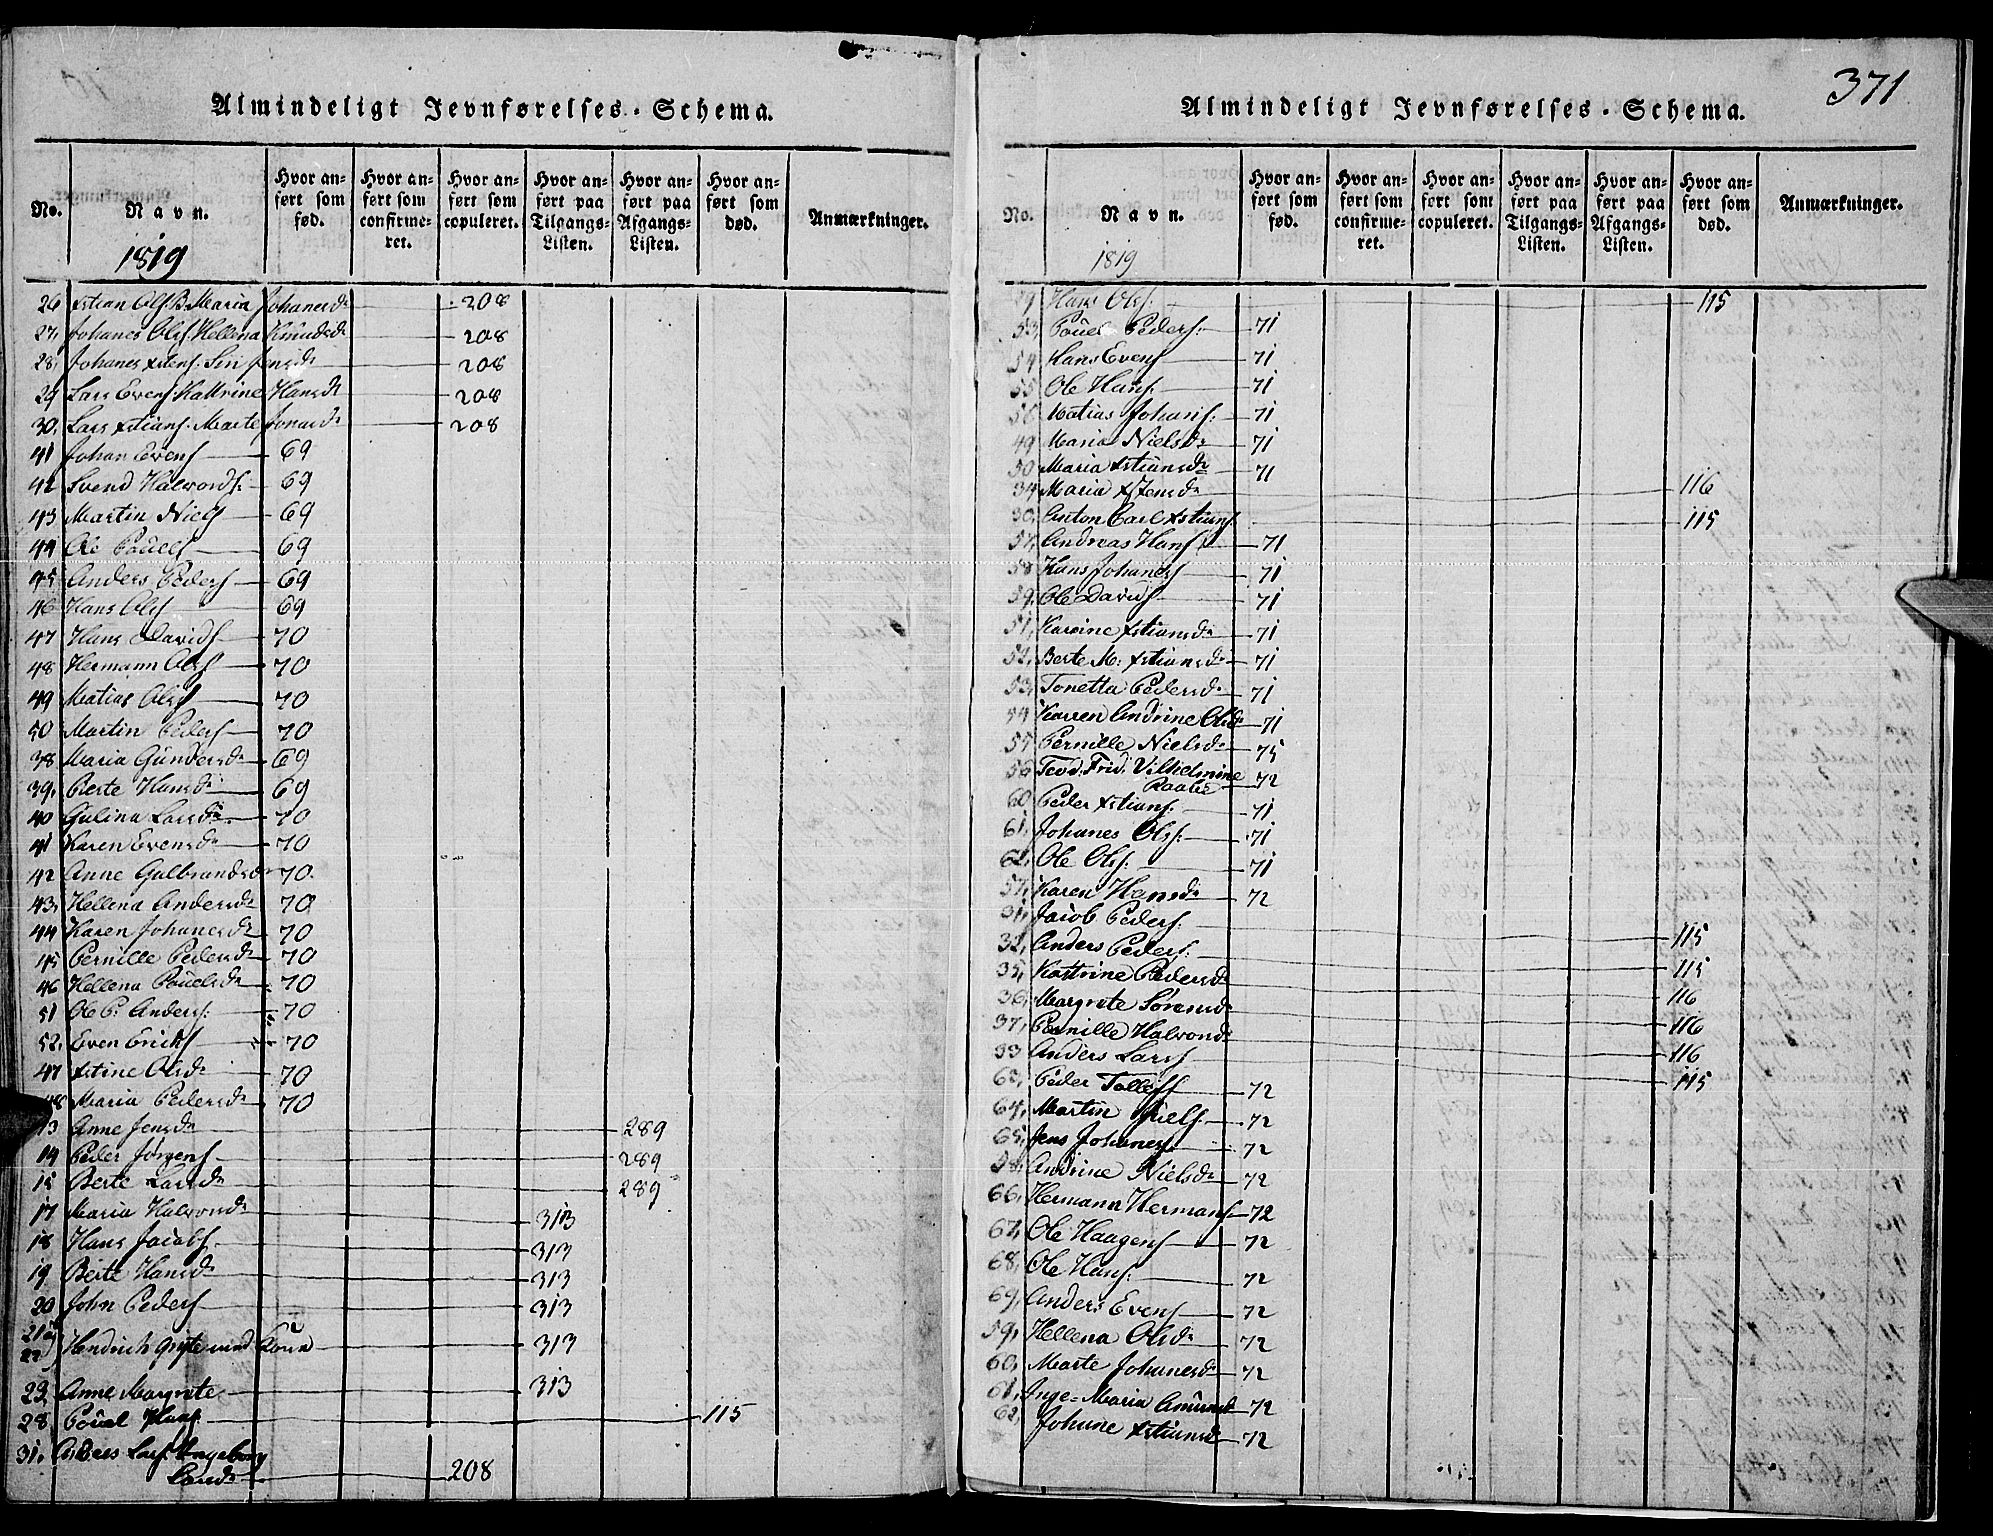 Almindeligt Jevnførelses-Schema.
No. Navn. Hvor anført som fød. Hvor anført som confirmeret. Hvor anført som copuleret. Hvor anført paa Tilgangs-Listen. Hvor anført paa Afgangs-Listen. Hvor anført som død. Anmærkninger.
1819
26 Xstian Olss Maria Johanesdr 208
27, Johanes Olss: Hellena Knudsdr 208
28, Johanes Xstens: Siri Jensdr 208
29 Lars Evens: Kattrine Hansdr 208
30, Lars Xstians: Marte Jonasdr 208
41 Johan Evens 69
42 Svend Halvords: 69
43 Martin Niels 69
44 Ole Pouels 69
45 Anders Peders 69
46 Hans Ols 69
47 Hans Davids 70
48 Hermann Ols 70
49 Matias Ols 70
50 Martin Peders 70
38 Maria Gundersdr 69
39, Berte Hansdr 69
40 Gulina Larsdr 70
41 Karen Evensdr 70
42 Anne Gulbrandsdr 70.
43, Hellena Andersdr 70
44 Karen Johanesdr 70
45 Pernille Pedersdr 70
46 Hellena Pouelsdr 70
51 Ole P: Anders: 70
52, Even Ericks 70
47 Xstine Olsdr 70
48 Maria Pedersdr 70
13 Anne Jensdr 289
14 Peder Jørgens 289
15 Berte Larsdr 289
17 Maria Halvordr 313
18 Hans Jacobs. 313
19 Berte Hansdr 313
20 John Peders 313
21 22 Hendrich med Kone 313
23 Anne Margrete 313
28 Pouel Hans 115
31, Lars: Ingeborg
Larsdr 208
371
Almindeligt Jevnførelses-Schema.
No. Navn. Hvor anført som fød. Hvor anført som confirmeret. Hvor anført som copuleret. Hvor anført paa Tilgangs-Listen. Hvor anført paa Afgangs-Listen. Hvor anført som død. Anmærkninger.
1819
Hans Ols: 115
53, Pouel Peders: 71
54 Hans Evens 71
55 Ole Hans: 71
56 Matias Johans: 71
49 Maria Nielsdr 71
50 Maria Xstiansdr 71
34 Maria Xstensdr 116
30, Anton Carl Xstians 115
57, Andreas Hans 71
58 Hans Johanes 71
59, Ole Davids 71
51, Karine Xstiansdr 71
52, Berte M: Xstiansdr 71
53, Tonetta Pedersdr 71
54 Karen Andrine Olsdr 71
55 Pernille Nielsdr 75
56 Teod: Frid: Vilhelmine 72
60 Peder Xstians: 71
61, Johanes Ols: 71
62, Ole Ols: 71
57, Karen Hansdr 72
31, Jacob Peders 115
32, Anders Peders: 115
35, Kattrine Pedersdr 116
36, Margrete Sørensdr 116
37, Pernille Halvordr 116
33 Anders Lars 115
63, Peder Tollefs 72
64, Martin Niels. 72
65, Jens Johanes. 72
58, Andrine Nielsdr 72
66, Hermann Hermans 72
67, Ole Haagens 72
68, Ole Hans: 72
69, Anders Evens 72
59, Hellena Olsdr 72
60, Marte Johanesdr 72
61, Inge-Maria Amundsdr 72
62, Johane Xstiansdr 72